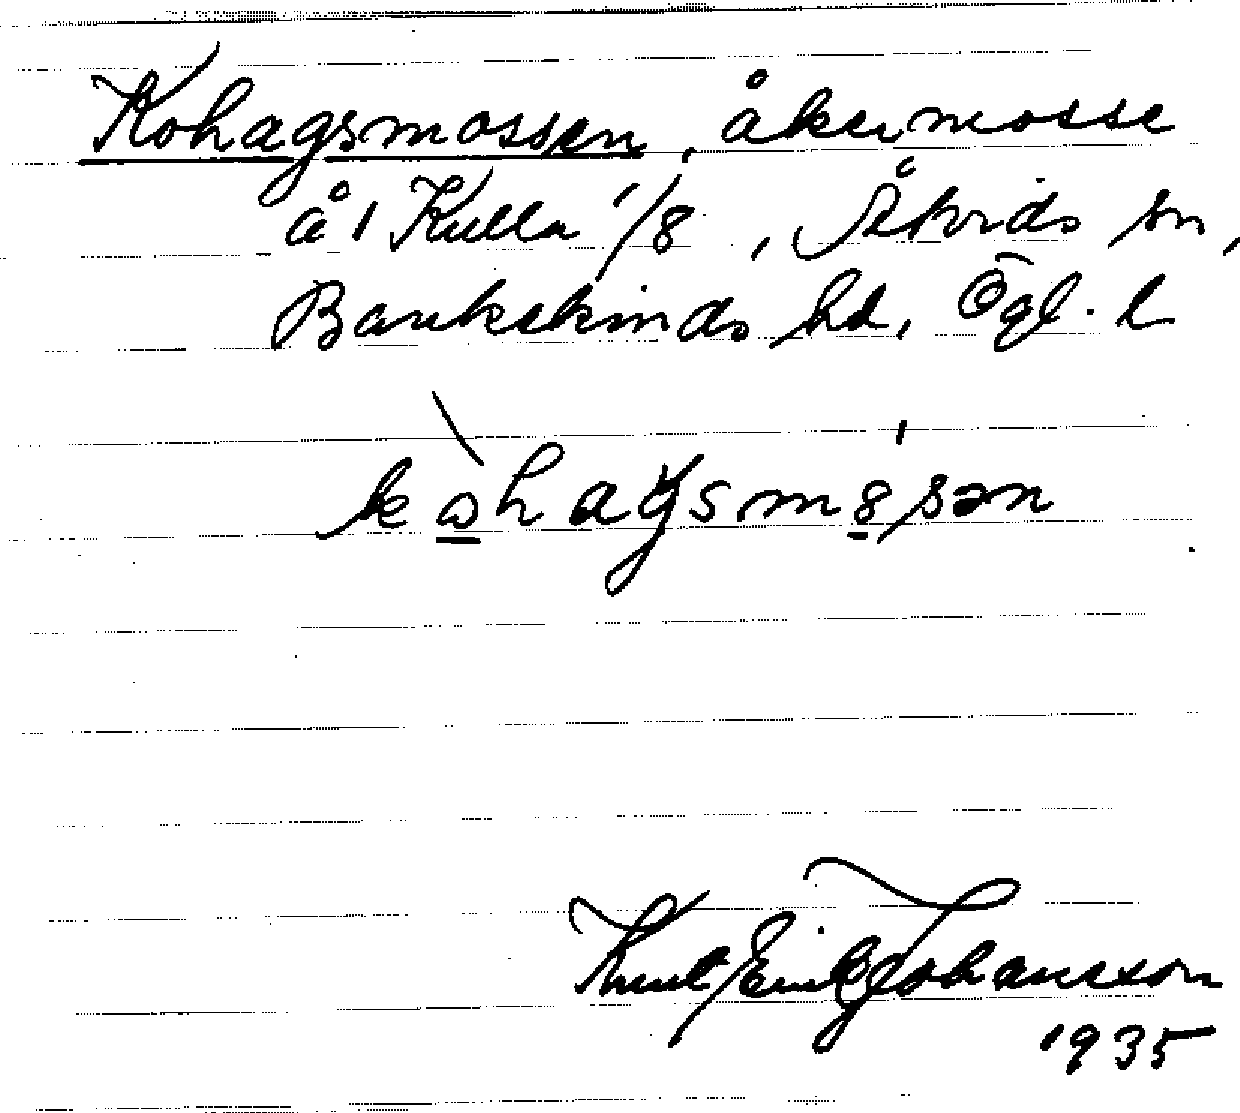 Kohagsmossen, åkermosse
å 1 Kulla 1/8, Åtvids sn,
Bankekinds hd, Ögl. l
1935
Knut Erik Johansson